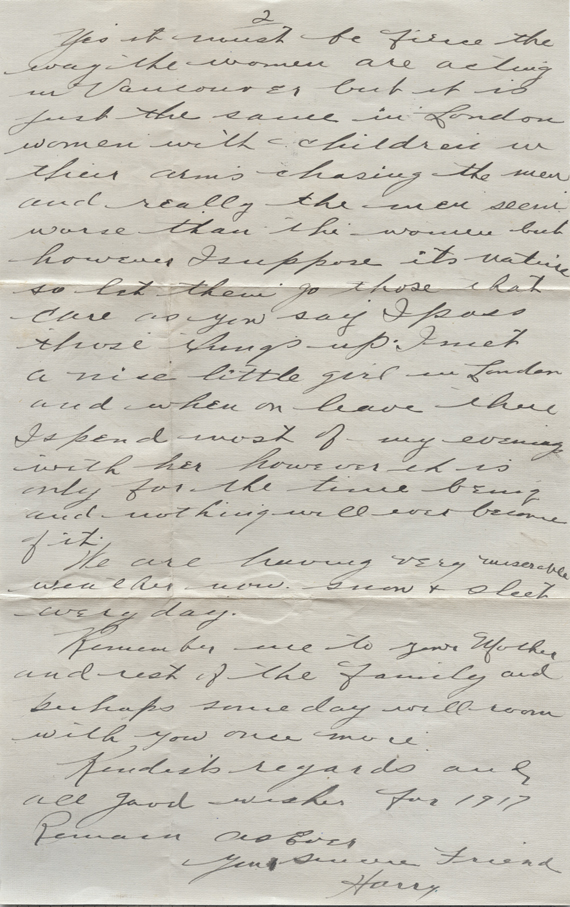 2
Yes it must be fierce the
way the women are acting
in Vancouver but it is
just the same in London
women with children in
their arms chasing the men
and really the men seem
worse than the women but
however I suppose its nature
so let them go those that
care as you say I pass
those things up. I met
a nise little girl in London
and when on leave there
I spend most of my evenings
with her however it is
only for the time being
and nothing will ever become
of it.
We are having very miserable
weather now. snow & sleet
every day.
Remember me to your Mother
and rest of the family and
perhaps some day will room
with you once more.
Kindest regards and
all good wishes for 1917
Remain as Ever
Your sincere Friend
Harry.